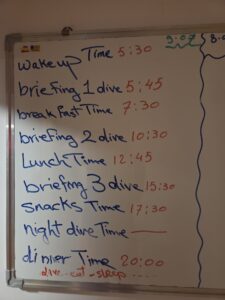 wake up Time 5:30
briefing 1 dive 5:45
break fast Time 7:30
briefing 2 dive 10:30
Lunch Time 12:45
briefing 3 dive 15:30
snacks Time 17:30
night dive Time —
dinner Time 20:00
dive - eat - sleep ....